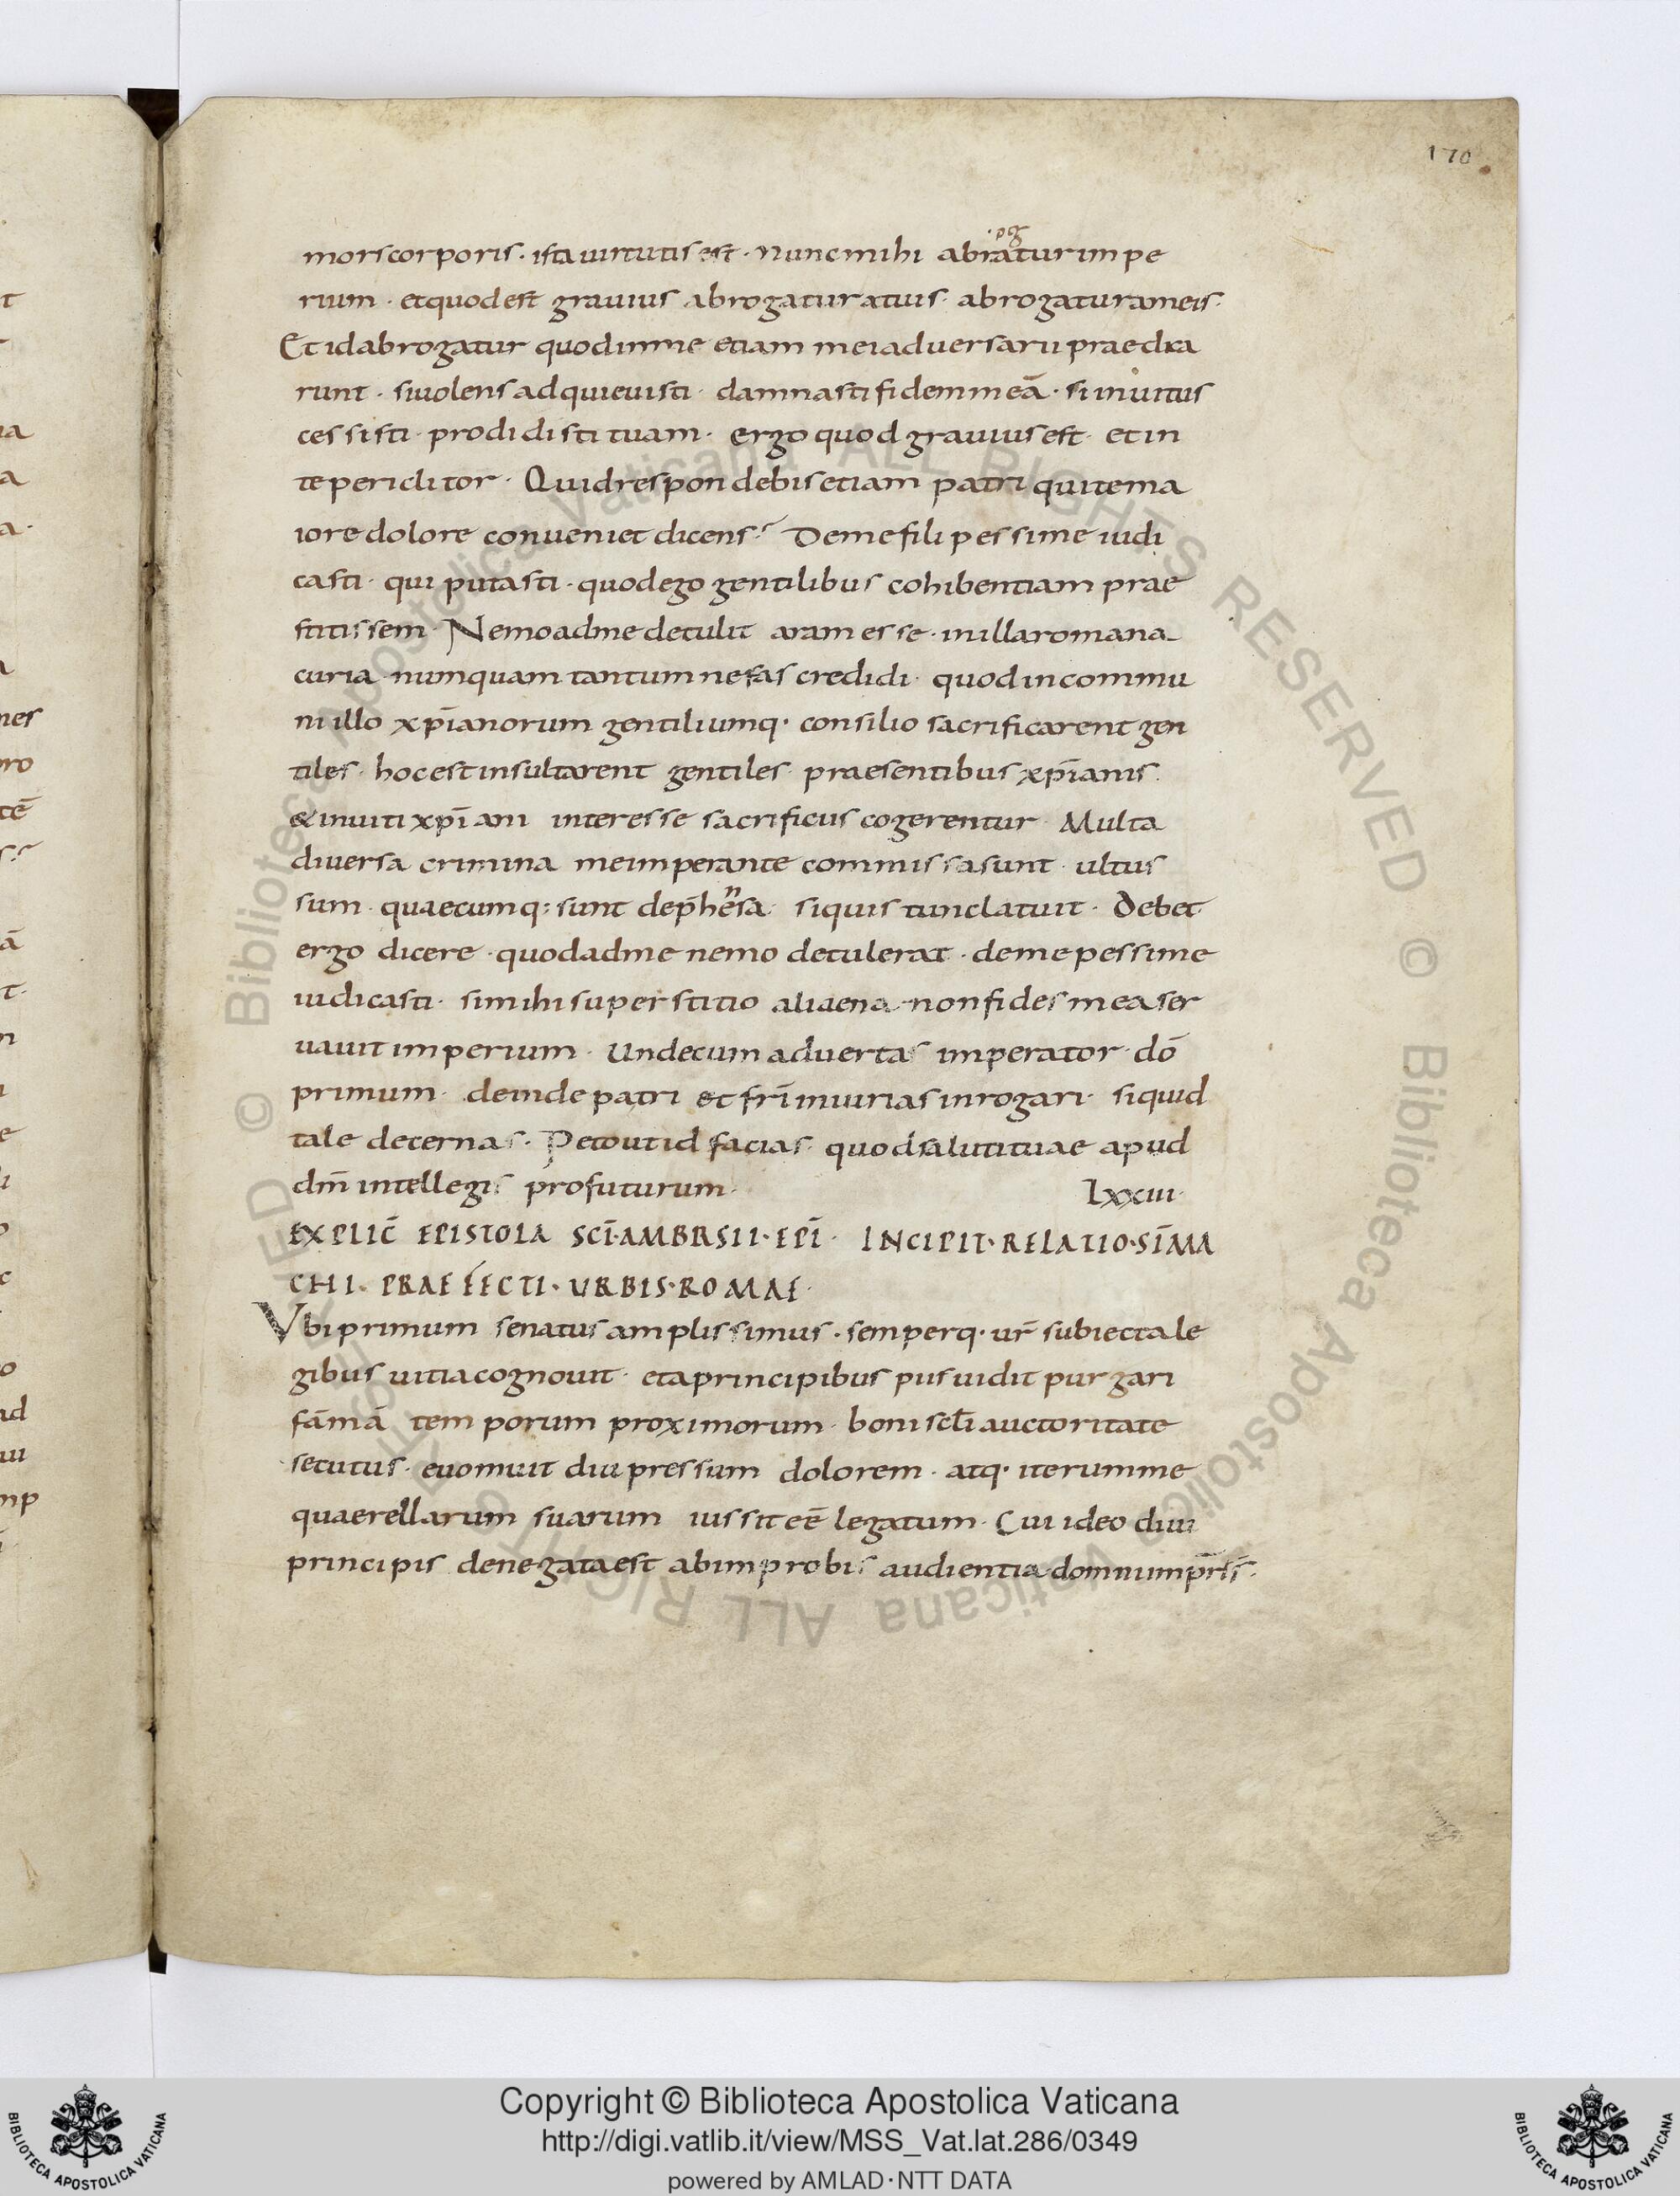 170
mors corporis · ista uirtutis est · nunc mihi abiatur impe
rog
rium · et quod est grauius abrogatur a tuis · abrogatur a meis ·
Et id abrogatur quod in me etiam mei aduersarii praedica
runt · si uolens adquieuisti · damnasti fidem meā · si inuitus
cessisti · prodidisti tuam · ergo quod grauius est · et in
te periclitor · Quid respondebis etiam patri qui te ma
iore dolore conueniet dicens? De me fili pessime iudi
casti · qui putasti · quod ego gentilibus cohibentiam prae
stitissem · Nemo ad me detulit aram esse · in illa romana
curia numquam tantum nefas credidi · quod in commu
ni illo xp̄ianorum gentiliumq· consilio sacrificarent gen
tiles · hoc est insultarent gentiles · praesentibus xp̄ianis ·
& inuiti xp̄iani interesse sacrificiis cogerentur · Multa
diuersa crimina me imperante commissa sunt · ultus
sum · quaecumq: sunt dep̄hensa · si quis tunc latuit · Debet
ergo dicere · quod ad me nemo detulerat · de me pessime
iudicasti · si mihi superstitio aliaena non fides mea ser
uauit imperium · Unde cum aduertas imperator · dō
primum · deinde patri et fr̄i iniurias inrogari · si quid
tale decernas · Peto ut id facias quod saluti tuae apud
dm̄ intellegis profuturum ·
Lxxiii ·
EXPLIC̄ EPISTOLA SCĪ·AMBRSII·EPĪ · INCIPIT·RELATIO·SĪMA
CHI · PRAEFECTI · URBIS·ROMAE ·
Vbi primum senatus amplissimus · semperq· ur̄ subiecta le
gibus uitia cognouit · et a principibus piis uidit purgari
fāmā temporum proximorum · boni sc̄li auctoritate
secutus · euomuit diu pressum dolorem · atq· iterum me
quaerellarum suarum iussit eē legatum · Cui ideo diui
principis denegata est ab improbis audientia domnum p̄rīs ·
Copyright © Biblioteca Apostolica Vaticana
http://digi.vatlib.it/view/MSS_Vat.lat.286/0349
powered by AMLAD·NTT DATA